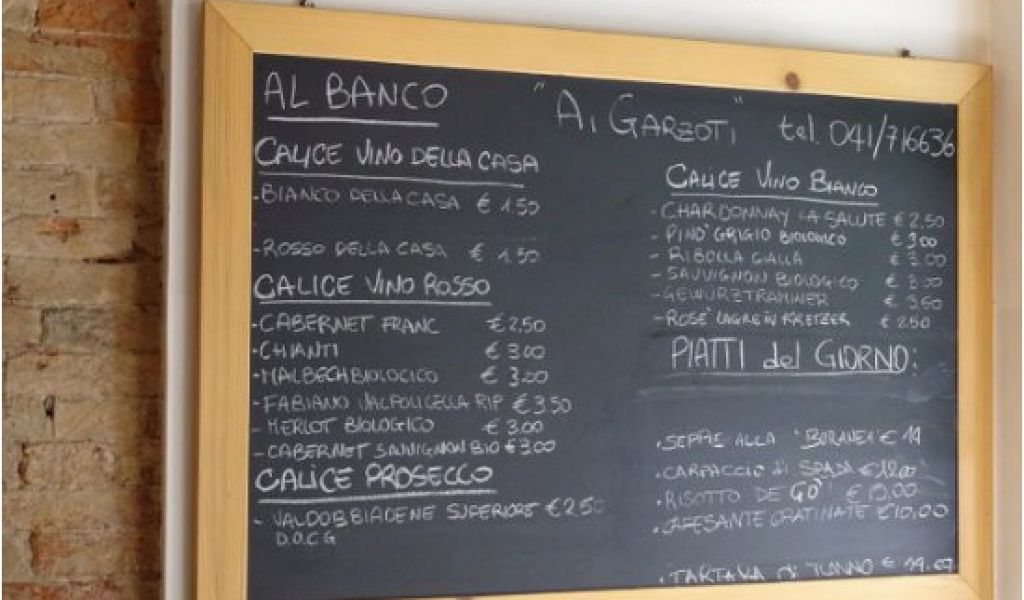 AL BANCO
"Ai GARZOTI" tel. 041/716636
CALICE VINO DELLA CASA
- BIANCO DELLA CASA € 1.50
- ROSSO DELLA CASA € 1.50
CALICE VINO ROSSO
- CABERNET FRANC € 2,50
- CHIANTI € 3.00
- MALBECH BIOLOGICO € 3.00
- FABIANO VALPOLICELLA RIP € 3.50
- MERLOT BIOLOGICO € 3.00
- CABERNET SAUVIGNON BIO € 3.00
CALICE PROSECCO
- VALDOBBIADENE SUPERIORE € 2.50
D.O.C.G
CALICE VINO BIANCO
- CHARDONNAY LA SALUTE € 2,50
- PINO' GRIGIO BIOLOGICO € 3.00
- RIBOLLA GIALLA € 3.00
- SAUVIGNON BIOLOGICO € 3.00
- GEWURZTRAMINER € 3,50
- ROSE' LAGREIN KRETZER € 2.50
PIATTI del GIORNO:
• SEPPIE ALLA "BURANEA" €
• CARPACCIO di SPADA € 12.00
• RISOTTO DE GÒ € 10.00
• CAPESANTE GRATINATE € 10,00
• TARTARA DI TONNO €